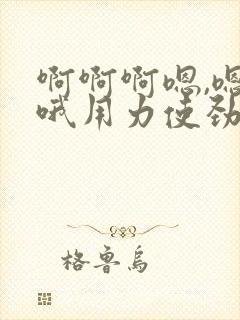 啊啊啊嗯,嗯
哦用力使劲
格鲁鸟